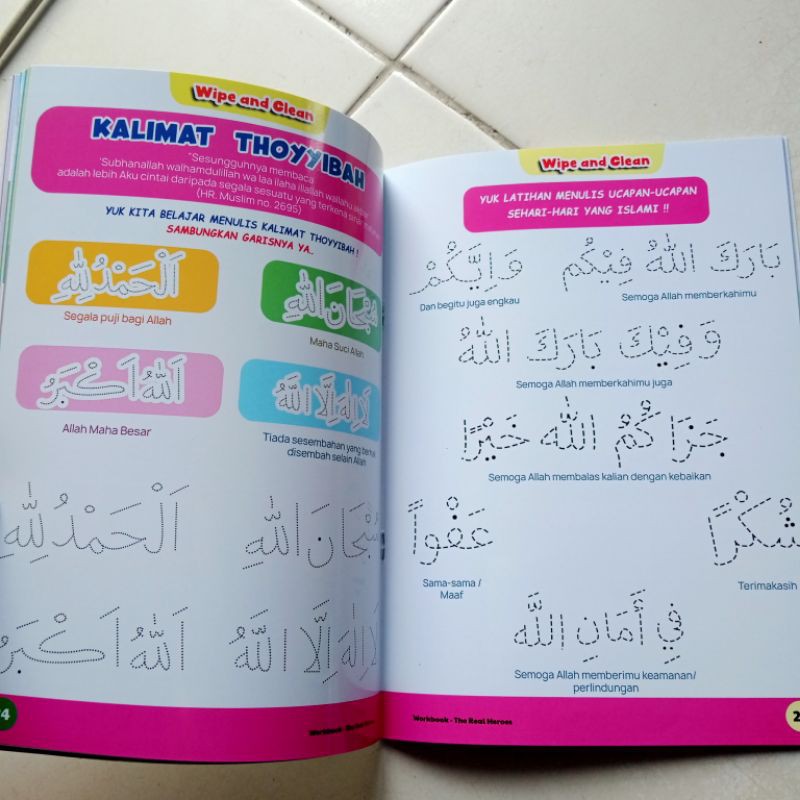 Wipe and Clean
KALIMAT THOYYIBAH
"Sesungguhnya membaca
'Subhanallah walhamdulillah wa laa ilaha illallah wallahu
adalah lebih Aku cintai daripada segala sesuatu yang terkena sinar
(HR. Muslim no. 2695)
YUK KITA BELAJAR MENULIS KALIMAT THOYYIBAH !
SAMBUNGKAN GARISNYA YA..
اَلْحَمْدُلِلّٰهِ
سُبْحَانَ اللّٰهِ
Segala puji bagi Allah
Maha Suci Allah
اَللّٰهُ اَكْبَرُ
لَا إِلٰهَ اِلَّا اللّٰهُ
Allah Maha Besar
Tiada sesembahan yang
disembah selain Allah
اَلْحَمْدُلِلّٰهِ
سُبْحَانَ اللّٰهِ
اَللّٰهُ اَكْبَرُ
لَا إِلٰهَ اِلَّا اللّٰهُ
Workbook -
Wipe and Clean
YUK LATIHAN MENULIS UCAPAN-UCAPAN
SEHARI-HARI YANG ISLAMI !!
بَارَكَ اللّٰهُ فِيْكُم
وَاِيَّكُمْ
Dan begitu juga engkau
Semoga Allah memberkahimu
وَفِيْكَ بَارَكَ اللّٰهُ
Semoga Allah memberkahimu juga
جَزَاكُمُ اللّٰه خَيْرًا
Semoga Allah membalas kalian dengan kebaikan
عَفْواً
شُكْرًا
Sama-sama /
Maaf
Terimakasih
فِي أَمَانِ اللَّه
Semoga Allah memberimu keamanan/
perlindungan
Workbook - The Real Heroes